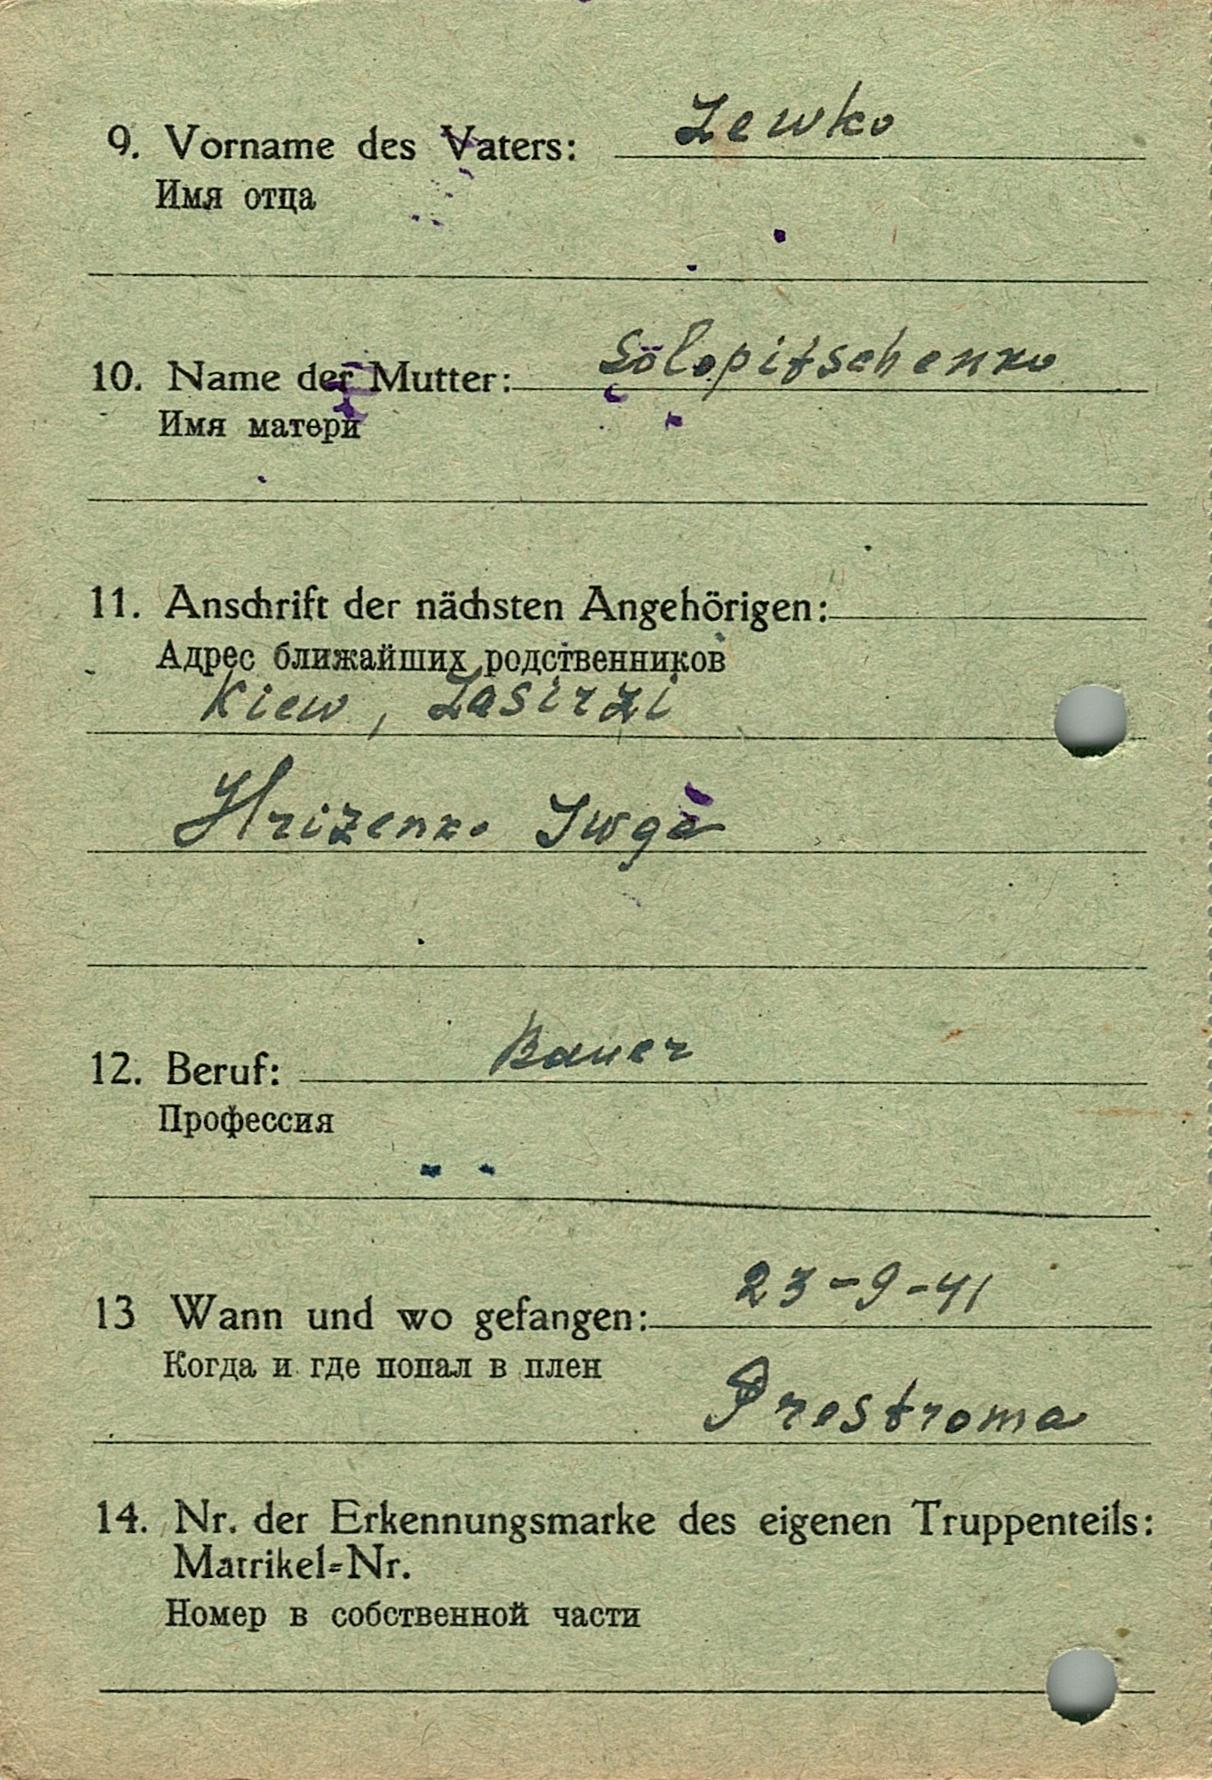 9. Vorname des Vaters: Lewko
Имя отца
10. Name der Mutter: Solopitschenko
Имя матери
11. Anschrift der nächsten Angehörigen:
Адрес ближайших родственников
Kiew,
Hrizenko Iwga
12. Beruf: Bauer
Профессия
13 Wann und wo gefangen: 23-9-41
Когда и где попал в плен
Prostroma
14. Nr. der Erkennungsmarke des eigenen Truppenteils:
Matrikel-Nr.
Номер в собственной части